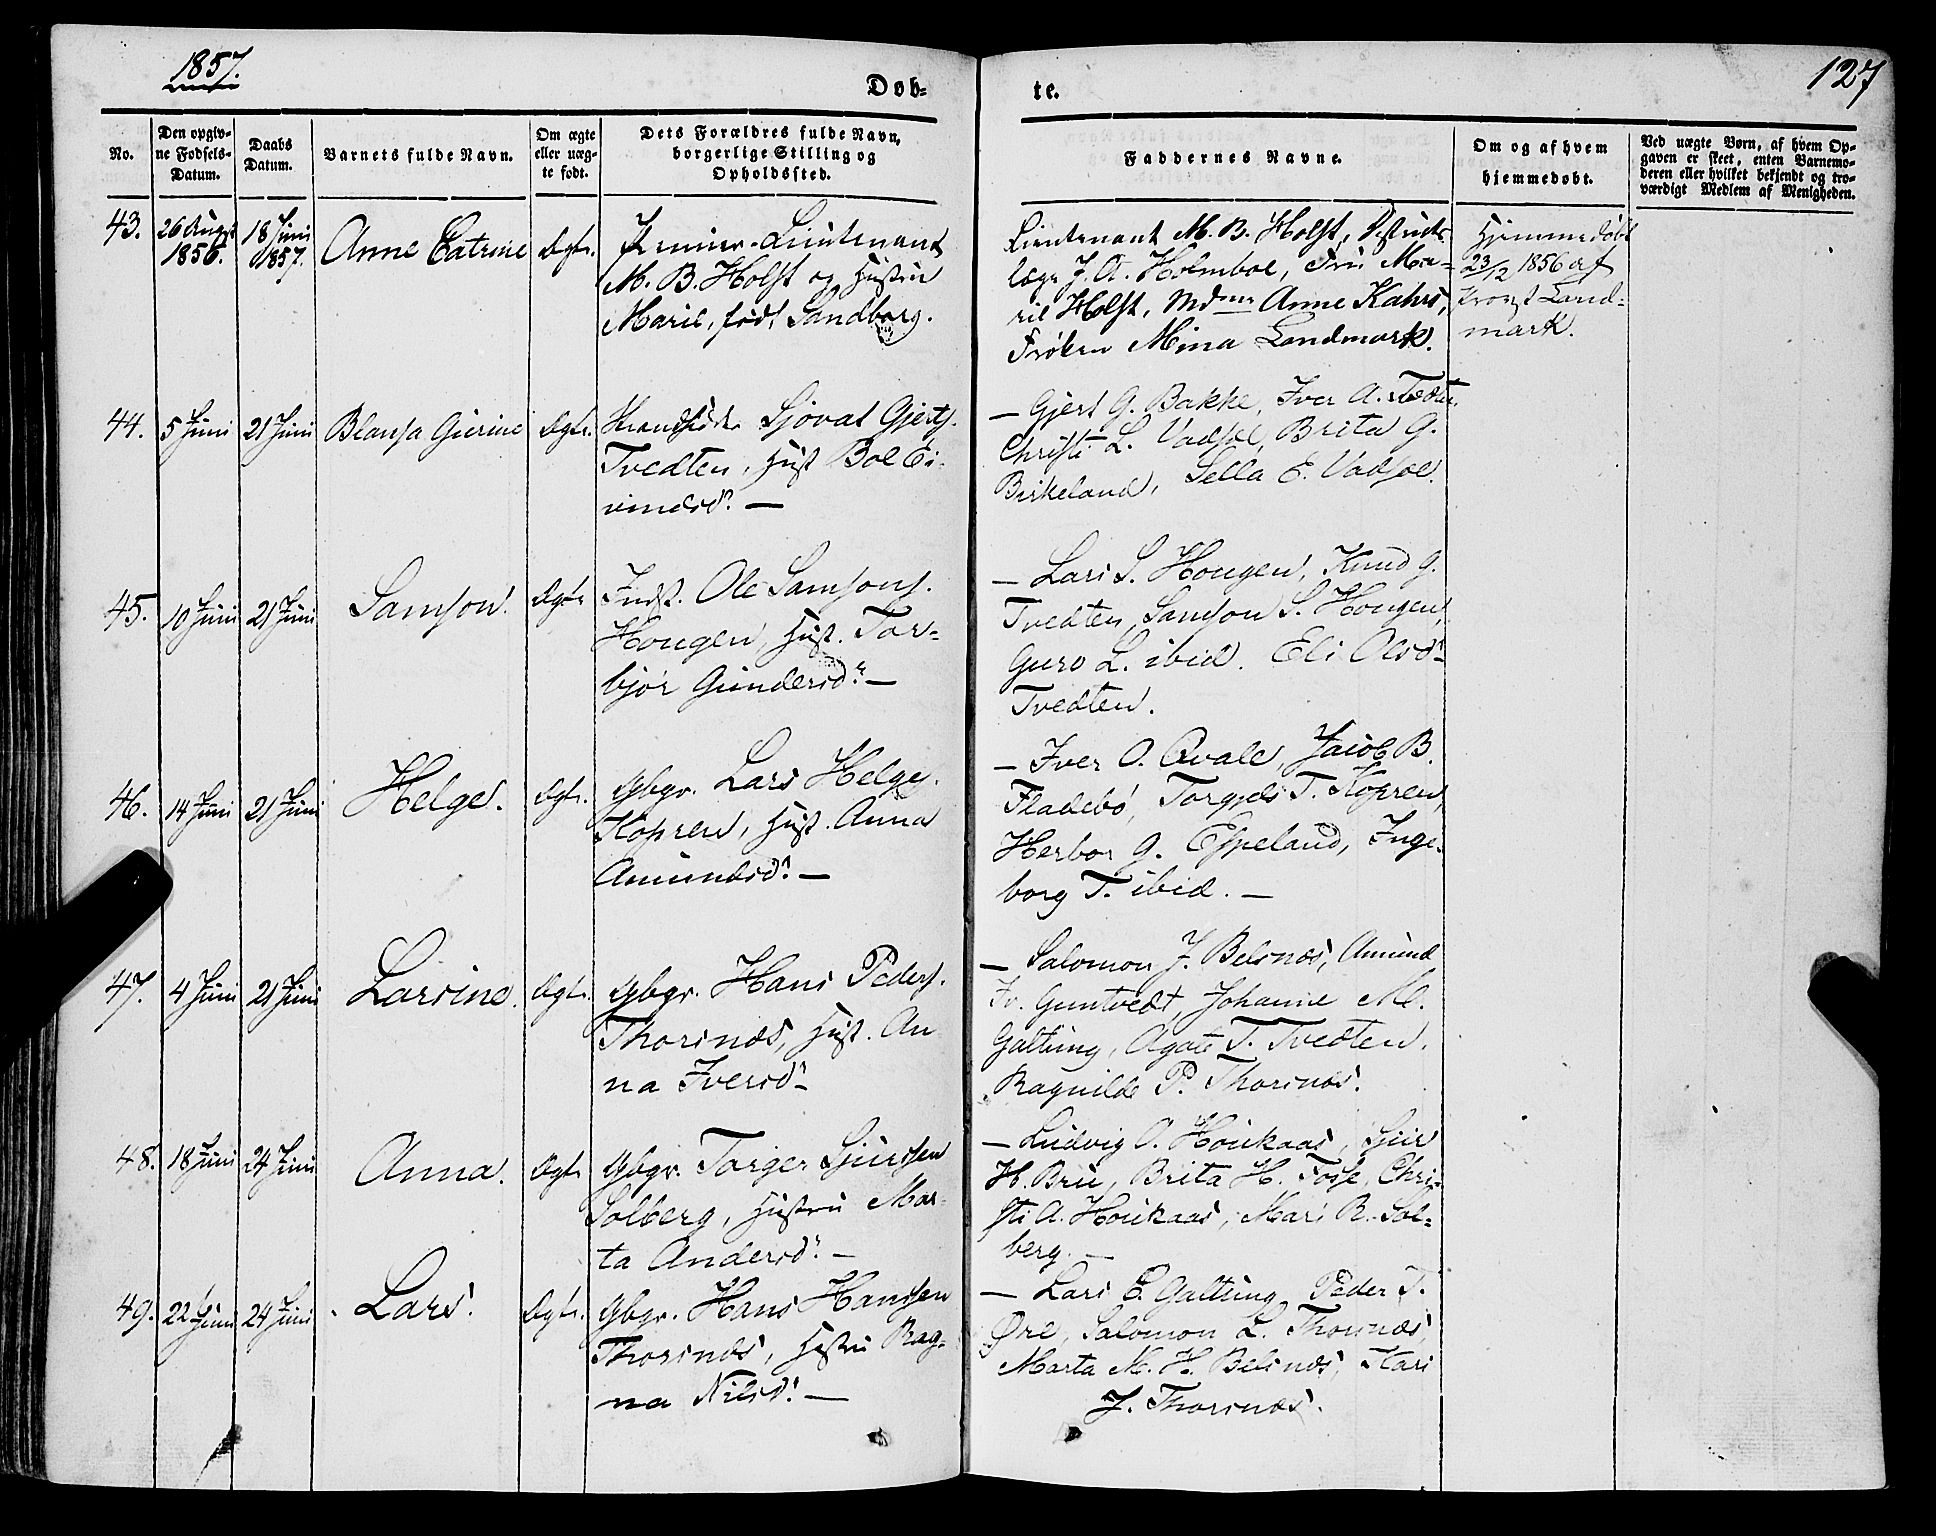 1857.
127
Døb-
te.
No.
Den opgiv-
ne Fødsels-
Datum.
Daabs
Datum.
Barnets fulde Navn.
Om ægte
eller uæg-
te født.
Dets Forældres fulde Navn,
borgerlige Stilling og
Opholdssted.
Faddernes Navne.
Om og af hvem
hjemmedøbt.
Ved uægte Børn, af hvem Op-
gaven er skeet, enten Barnemo-
deren eller hvilket bekjendt og tro-
værdigt Medlem af Menigheden.
43.
26 Augst
1856.
18 Juni
1857.
Anne Catrine
Ægte.
Premier-Lieutenant
M. B. Holst og Hustru
Marie, født Sandborg.
Lieutenant M. B. Holst, Distrikts
læge J. A. Holmboe, Fru Ma-
rie Holst, Mdme Anne Kahrs,
Frøken Mina Landmark.
Hjemmedøbt
23/12 1856 af
Provst Land-
mark.
44.
5 Juni
21 Juni
Blansa Gurine
Ægte.
Sjovat Gjerts.
Tvedten, Hust Bol Ei-
vindsd. —
— Gjert G. Bakke, Iver A. Tvedten,
Christi L. Vadsel, Brita G.
Birkeland, Sella E. Vadsel.
45.
10 Juni
21 Juni
Samson.
Ægte
Indst. Ole Samsons.
Hougen, Hust. Tor-
bjør Gundersd. —
— Lars S. Hougen, Knud G.
Tvedten, Samson S. Hougen,
Guro L. ibid. Eli Olsd.
Tvedten.
46.
14 Juni
21 Juni
Helge.
Ægte.
Gbgr. Lars Helges.
Kopren, Hust. Anna
Amundsd. —
— Iver O. Qvale, Jacob B.
Fladebø, Torgils T. Kopren,
Herbor G. Espeland, Inge-
borg T. ibid. —
47.
4 Juni
21 Juni
Larsine.
Ægte.
Gbgr. Hans Peders.
Thorsnæs, Hust. An
na Iversd.
— Salomon J. Belsnæs, Amund
Iv. Guntvedt, Johanne M.
Galtung, Agate T. Tvedten.
Ragnilde P. Thorsnæs.
48.
18 Juni
24 Juni
Anna.
Ægte
Gbgr. Torger Sjurssen
Solberg, Hustru Mar-
ta Andersd. —
— Ludvig O. Houkaas, Sjur
H. Bru, Brita H. Fosse, Chri-
sti A. Houkaas, Mari R. Sol-
berg. —
49.
22 Juni
24 Juni
Lars.
Ægte.
Gbgr. Hans Hanssen
Thorsnæs, Hustru Rag-
na Nilsd. —
— Lars E. Galtung, Peder T.
Øre, Salomon L. Thorsnæs,
Marta M. H. Belsnæs, Kari
J. Thorsnæs.